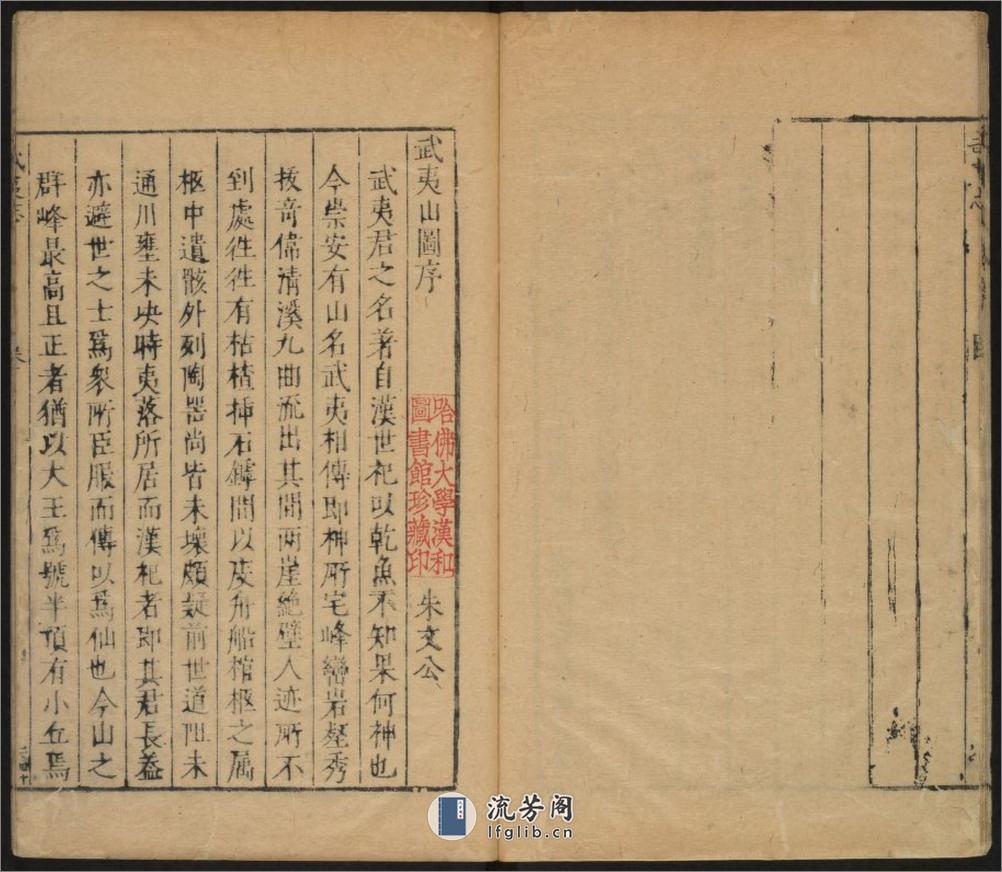 武夷山圖序 朱文公
武夷君之名著自漢世祀以乾魚不知果何神也
今崇安有山名武夷相傳即神所宅峰巒岩壑秀
拔奇偉清溪九曲流出其間兩崖絶壁人迹所不
到處往往有枯楂揷石罅間以庋舟船棺柩之属
柩中遺骸外列陶噐尚皆未壞頗疑前世道阻未
通川壅未决時夷落所居而漢祀者即其君長蓋
亦避世之士爲衆所臣服而傳以爲仙也今山之
群峰最高且正者猶以大王爲號半頂有小丘焉
哈佛大學漢和
圖書館珍藏印
武夷志
流芳阁
lfglib.cn